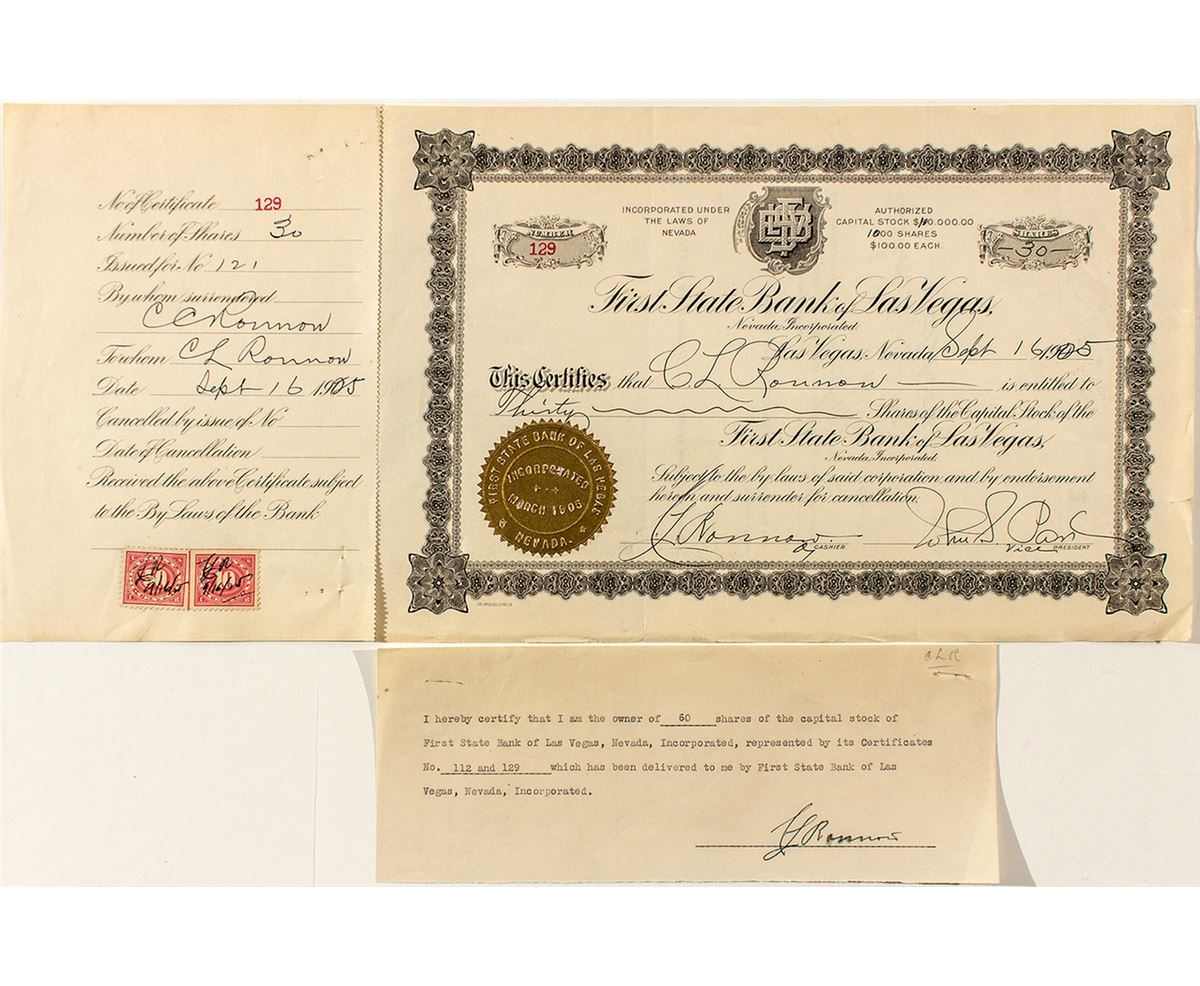 No of Certificate 129
Number of Shares 30
Issued for No 121
By whom surrendered
C C Ronnow
To whom C L Ronnow
Date Sept 16 1925
Cancelled by issue of No
Date of Cancellation
Received the above Certificate subject
to the By Laws of the Bank
NUMBER
129
INCORPORATED UNDER
THE LAWS OF
NEVADA
AUTHORIZED
CAPITAL STOCK $100.000.00
1000 SHARES
$100.00 EACH
SHARES
-30-
First State Bank of Las Vegas,
Nevada, Incorporated.
Las Vegas, Nevada, Sept 16 1925
This Certifies that C L Ronnow is entitled to
Thirty Shares of the Capital Stock of the
First State Bank of Las Vegas,
Nevada, Incorporated.
Subject to the by laws of said corporation and by endorsement
hereon and surrender for cancellation.
C L Ronnow John S. Park
CASHIER Vice PRESIDENT
FIRST STATE BANK OF LAS VEGAS
INCORPORATED
MARCH 1905
NEVADA.
C L R
I hereby certify that I am the owner of 60 shares of the capital stock of
First State Bank of Las Vegas, Nevada, Incorporated, represented by its Certificates
No. 112 and 129 which has been delivered to me by First State Bank of Las
Vegas, Nevada, Incorporated.
C L Ronnow